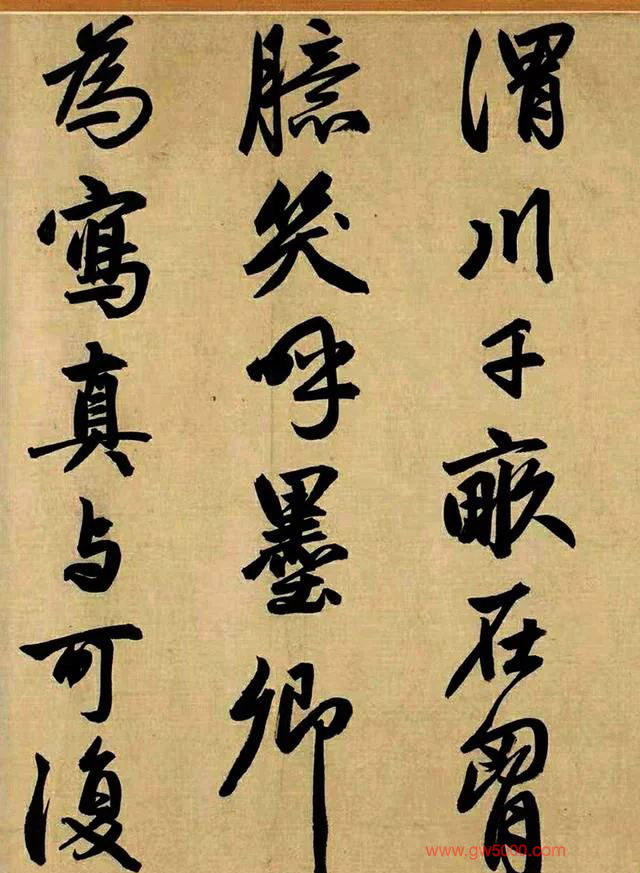 渭川千畝在胷
臆笑呼墨卿
為寫真与可復
www.gw5000.com